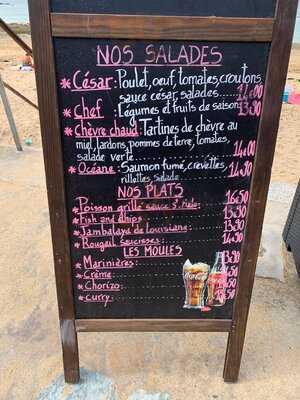 NOS SALADES
*César: Poulet, oeuf, tomates, croutons,
sauce césar, salades 14'00
*Chef: Légumes et fruits de saison 13'90
*Chèvre chaud: Tartines de chèvre au
miel, lardons, pommes de terre, tomates,
salade verte 14'00
*Océane: Saumon fumé, crevettes,
rillettes, salade 14'90
NOS PLATS
*Poisson grillé sauce 16'50
*Fish and chips 13'90
*Jambalaya de Louisiane 14'90
*Rougail Saucisses 14'90
LES MOULES
*Marinières 13'50
*Crème 14'50
*Chorizo 15'50
*curry 15'50
Coca-Cola